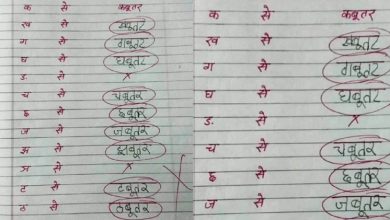 क से कबूतर
ख से खबूतर
ग से गबूतर
घ से घबूतर
ङ से ×
च से चबूतर
छ से छबूतर
ज से जबूतर
झ से झबूतर
ञ से ×
ट से टबूतर
ठ से ठबूतर
क से कबूतर
ख से खबूतर
ग से गबूतर
घ से घबूतर
ङ से ×
च से चबूतर
छ से छबूतर
ज से जबूतर